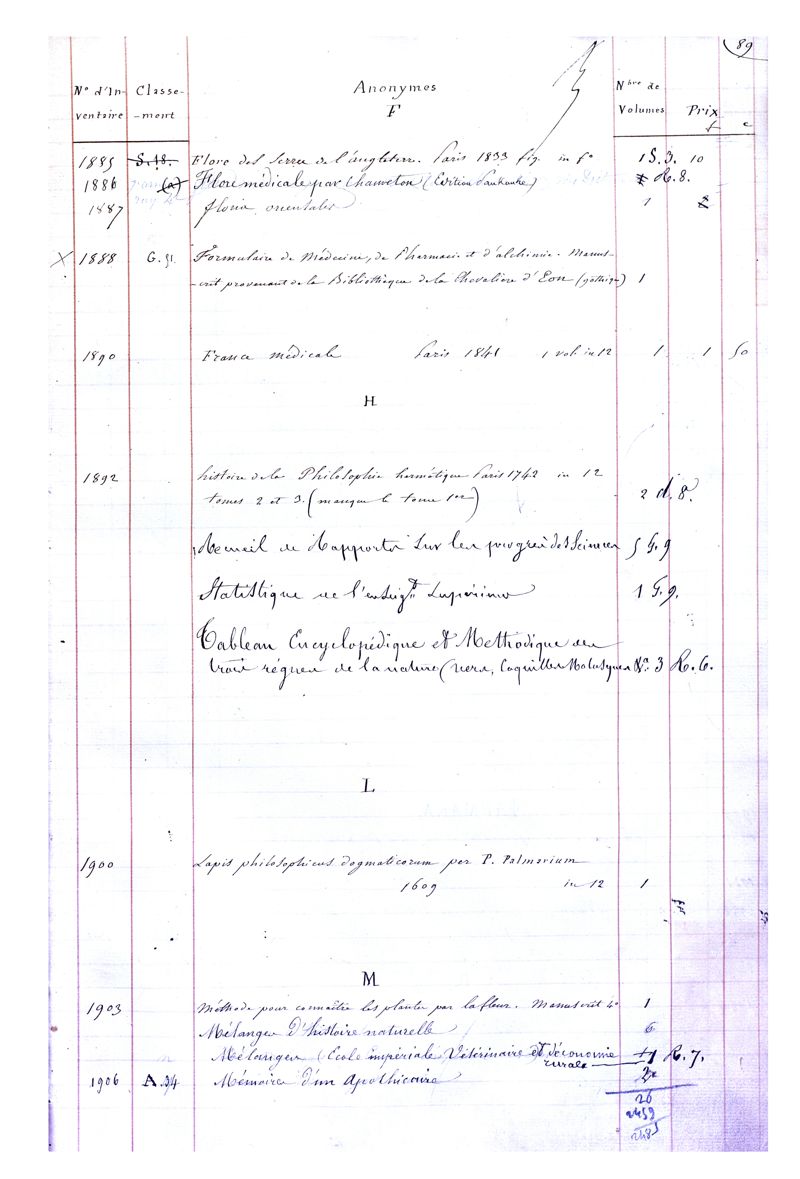 89
N° d'In- Classe- Anonymes Nbre de
ventaire -ment F Volumes Prix
f c
1885 S.18. Flore des serres de l'angleterre. Paris 1833 fig. in f° 1 S.3. 10
1886 (a) Flore médicale par Chaumeton (Edition Pankouke) R.8.
1887 floria orientalis 1
X 1888 G.51. Formulaire de Médecine, de Pharmacie et d'alchimie. Manus-
-crit provenant de la Bibliothèque de la Chevalière d'Eon (gothique) 1
1890 France médicale Paris 1841 1 vol. in 12 1 1 50
H
1892 histoire de la Philosophie hermétique Paris 1742 in 12
tomes 2 et 3. (manque le tome 1er) 2 d.8.
Recueil de Rapports sur les progrès des Sciences 5 G.9
Statistique de l'enseigt Supérieur 1 G.9.
Tableau Encyclopédique et Methodique des
trois règnes de la nature (vers, Coquilles Molusques Vs. 3 R.6.
L
1900 Lapis philosophicus dogmaticorum per P. Palmarium
1609 in 12 1
M
1903 Méthode pour connaître les plantes par la fleur. Manuscrit 4° 1
Mélanges d'histoire naturelle 6
Mélanges (Ecole impériale Vétérinaire et d'économie 11 R.7.
rurale
1906 A.34 Mémoires d'un Apothicaire 2
26
2459
2485